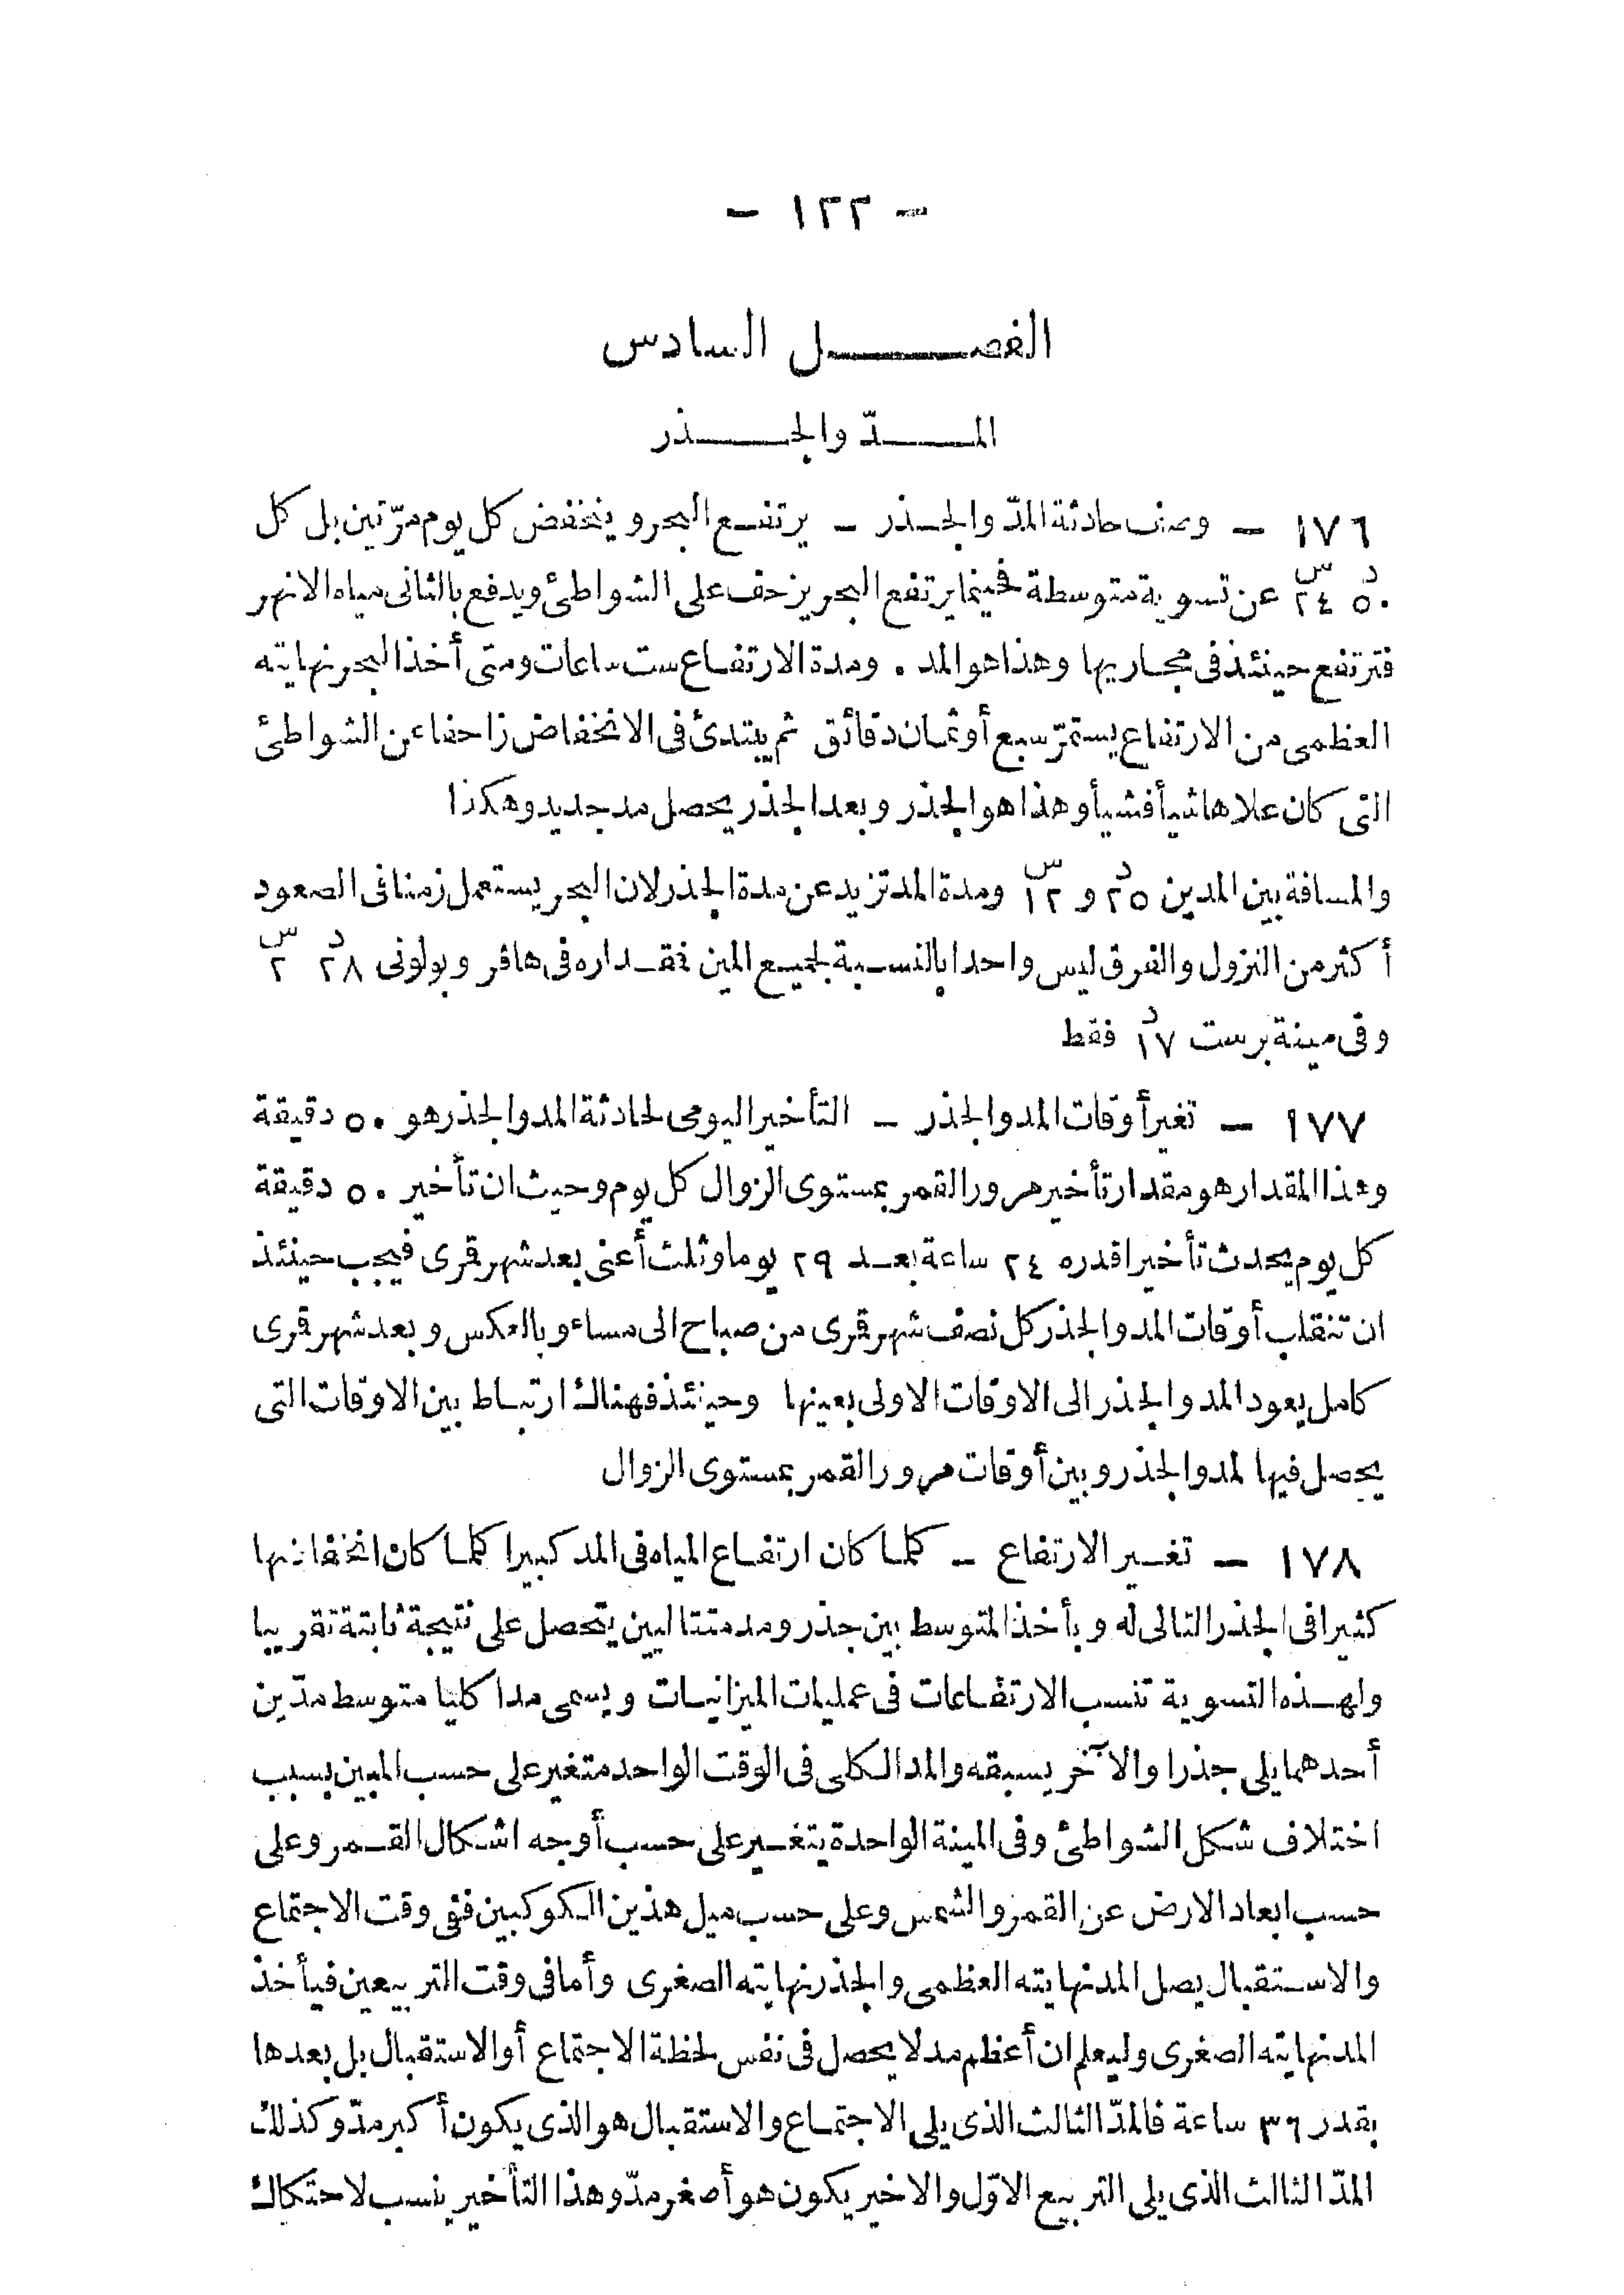 - ١٢٢ -
الفصـــــل السادس
المــــدّ والجــــذر
١٧٦ — وصف حادثة المدّ والجـذر — يرتفـع البحر وينخفض كل يوم مرّتين بل كل
٥٠د ٢٤س عن تسوية متوسطة فحينما يرتفع البحر يزحف على الشواطئ ويدفع بالثانى مياه الانهر
فترتفع حينئذ فى مجاريها وهذا هو المد . ومدة الارتفاع ست ساعات ومتى أخذ البحر نهايته
العظمى من الارتفاع يستمرّ سبع أو ثمان دقائق ثم يبتدئ فى الانخفاض زاحفا عن الشواطئ
التى كان علاها شيأ فشيأ وهذا هو الجذر وبعد الجذر يحصل مد جديد وهكذا
والمسافة بين المدين ٢٥د و ١٢س ومدة المد تزيد عن مدة الجذر لان البحر يستعمل زمنا فى الصعود
أكثر من النزول والفرق ليس واحدا بالنسـبة لجميـع المين فقـداره فى هافر وبولونى ٢٨د ٢س
وفى مينة برست ١٧د فقط
١٧٧ — تغير أوقات المد والجذر — التأخير اليومى لحادثة المد والجذر هو ٥٠ دقيقة
وهذا المقدار هو مقدار تأخير مرور القمر بمستوى الزوال كل يوم وحيث ان تأخير ٥٠ دقيقة
كل يوم يحدث تأخيرا قدره ٢٤ ساعة بعـد ٢٩ يوما وثلث أعنى بعد شهر قرى فيجب حينئذ
ان تنقلب أوقات المد والجذر كل نصف شهر قرى من صباح الى مساء وبالعكس وبعد شهر قرى
كامل يعود المد والجذر الى الاوقات الاولى بعينها وحينئذ فهناك ارتباط بين الاوقات التى
يحصل فيها لمد والجذر وبين أوقات مرور القمر بمستوى الزوال
١٧٨ — تغـير الارتفاع — كلما كان ارتفاع المياه فى المد كبيرا كلما كان انخفاضها
كثيرا فى الجذر التالى له وبأخذ المتوسط بين جذر ومد متتاليين يتحصل على نتيجة ثابتة تقريبا
ولهـذه التسوية تنسب الارتفاعات فى عمليات الميزانيات ويسمى مدا كليا متوسط مدّين
أحدهما يلى جذرا والآخر يسبقه والمد الكلى فى الوقت الواحد متغير على حسب المين بسبب
اختلاف شكل الشواطئ وفى المينة الواحدة يتغـير على حسب أوجه اشكال القـمر وعلى
حسب ابعاد الارض عن القمر والشمس وعلى حسب ميل هذين الكوكبين ففى وقت الاجتماع
والاسـتقبال يصل المد نهايته العظمى والجذر نهايته الصغرى وأما فى وقت التربيعين فيأخذ
المد نهايته الصغرى وليعلم ان أعظم مد لا يحصل فى نفس لحظة الاجتماع أو الاستقبال بل بعدها
بقدر ٣٦ ساعة فالمدّ الثالث الذى يلى الاجتماع والاستقبال هو الذى يكون أكبر مدّ وكذلك
المدّ الثالث الذى يلى التربيع الاوّل والاخير يكون هو أصغر مدّ وهذا التأخير ينسب لاحتكاك